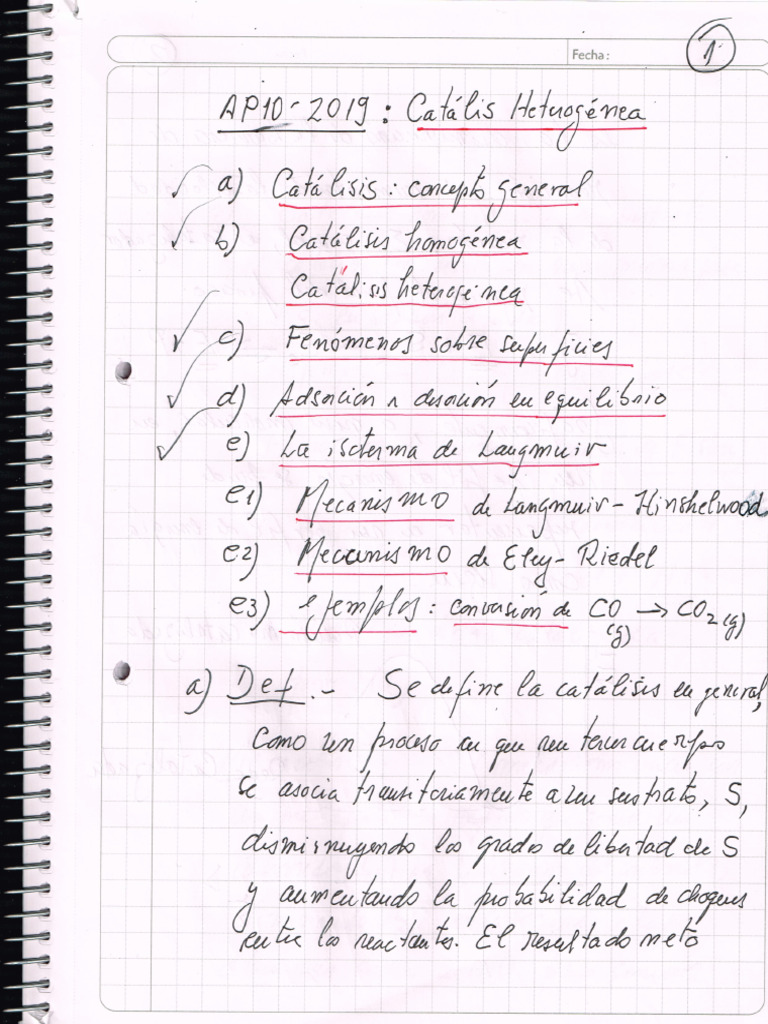 Fecha:
1
AP10-2019 : Catális Heterogénea
a) Catálisis : concepto general
b) Catálisis homogénea
Catálisis heterogénea
c) Fenómenos sobre superficies
d) Adsorción n desorción en equilibrio
e) La isoterma de Langmuir
e1) Mecanismo de Langmuir-Hinshelwood
e2) Mecanismo de Eley-Riedel
e3) ejemplos : conversión de CO (g) → CO2 (g)
a) Def .- Se define la catálisis en general,
como un proceso en que un tercer cuerpo
se asocia transitoriamente a un sustrato, S,
disminuyendo los grados de libertad de S
y aumentando la probabilidad de choques
entre los reactantes. El resultado neto